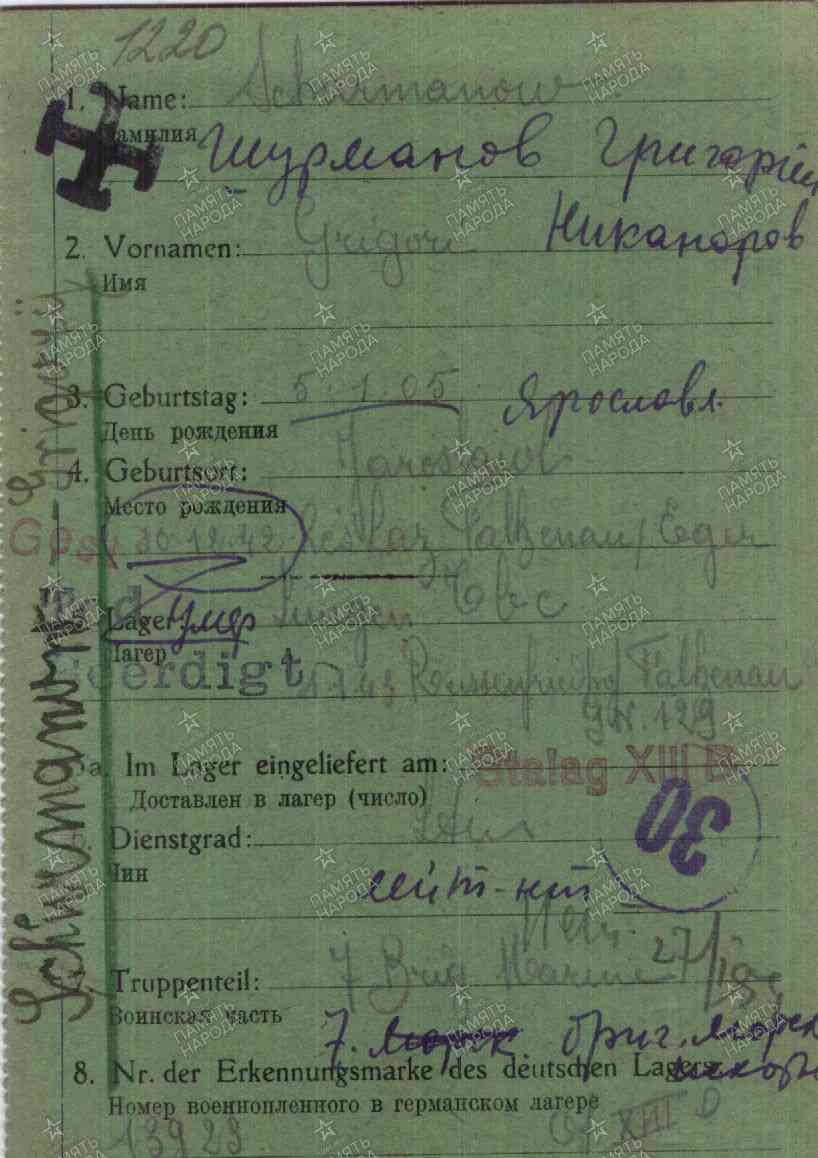 1220
1. Name: Schurmanow
Фамилия Шурманов Григорий
2. Vornamen: Grigori Никаноров
Имя
3. Geburtstag: 5.1.05 Ярославл.
День рождения
4. Geburtsort: Jaroslawl
Место рождения
30.12.42. Res Laz. Falkenau/Eger
Tbc
5. Lager: умер
Лагерь
Beerdigt 1.1.43 Falkenau
gr. 129
5a. Im Lager eingeliefert am: Stalag XIII B
Доставлен в лагер (число)
6. Dienstgrad: 30
Чин
лейт-нт
7. Truppenteil: 7 Brig Marine 27/
Воинская часть
7. бриг. морск
8. Nr. der Erkennungsmarke des deutschen Lagers
Номер военнопленного в германском лагере
13923 Of XIII D
Schurmanow - Grigorij
ПАМЯТЬ НАРОДА